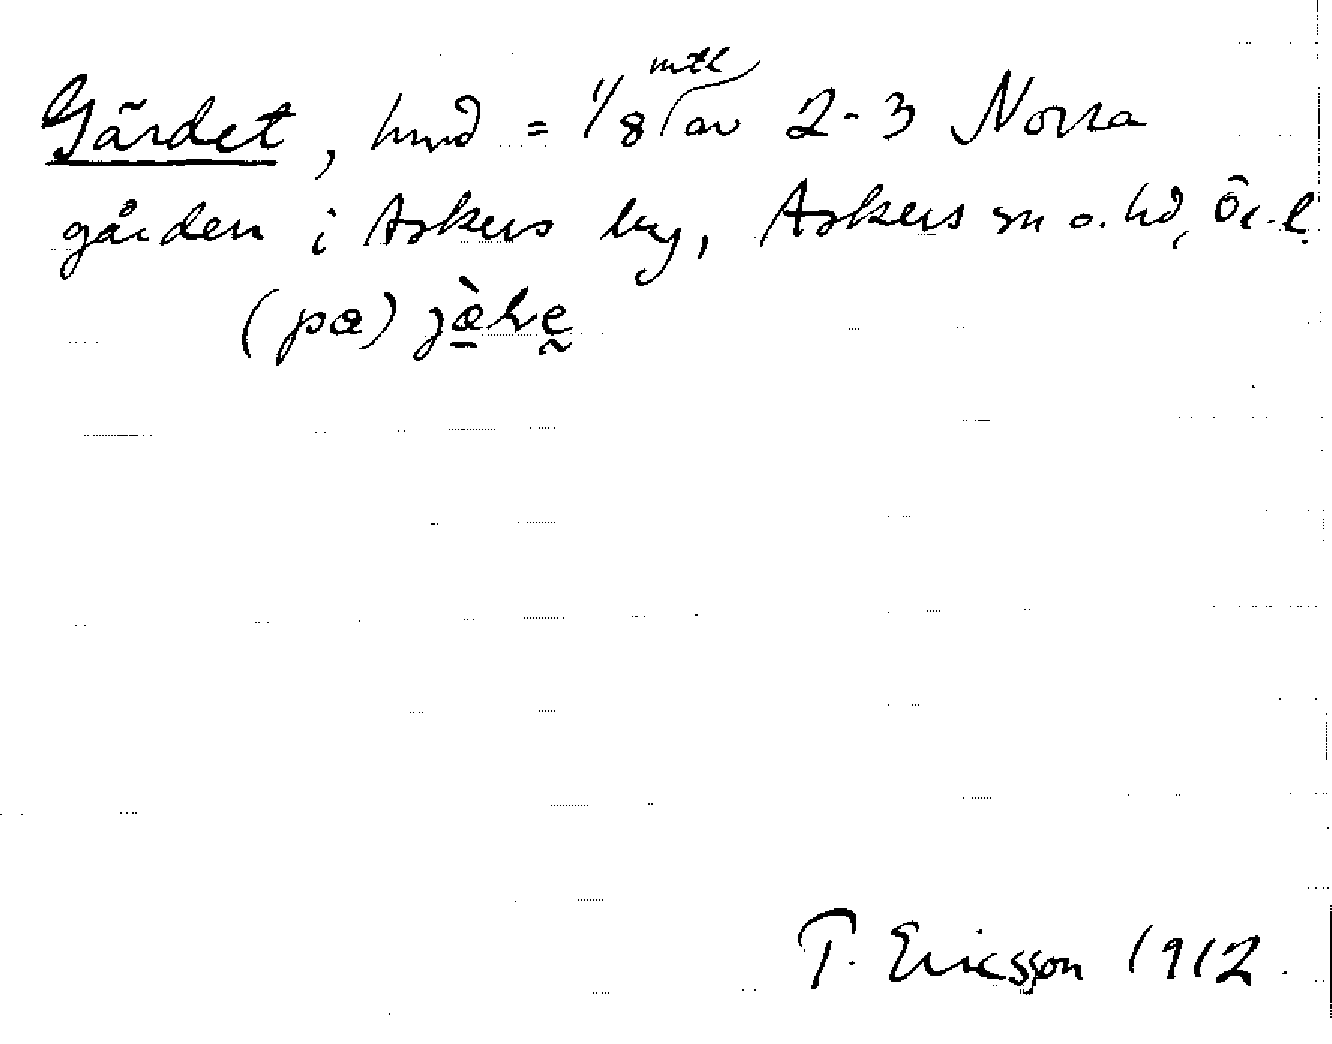 Gärdet, hmd = 1/8 mtl av 2-3 Norra
gården i Askers by, Askers sn o. hd, Ör. l.
(pœ)
T. Ericsson 1912.